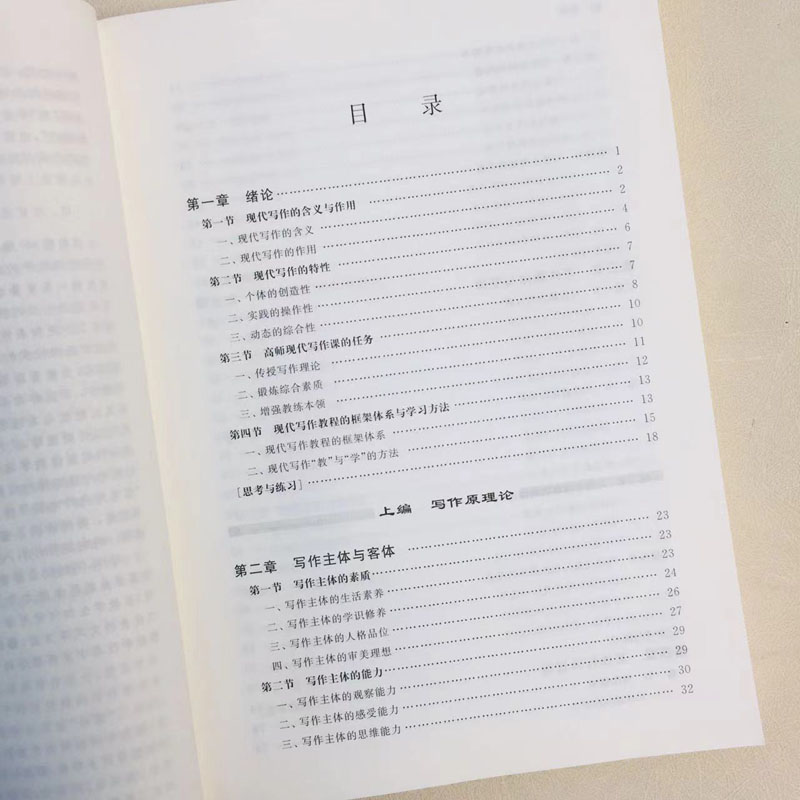 目 录
第一章 绪论 1
第一节 现代写作的含义与作用 2
一、现代写作的含义 2
二、现代写作的作用 4
第二节 现代写作的特性 6
一、个体的创造性 7
二、实践的操作性 7
三、动态的综合性 8
第三节 高师现代写作课的任务 10
一、传授写作理论 10
二、锻炼综合素质 11
三、增强教练本领 12
第四节 现代写作教程的框架体系与学习方法 13
一、现代写作教程的框架体系 13
二、现代写作“教”与“学”的方法 15
[思考与练习] 18
上编 写作原理论
第二章 写作主体与客体 23
第一节 写作主体的素质 23
一、写作主体的生活素养 23
二、写作主体的学识修养 24
三、写作主体的人格品位 26
四、写作主体的审美理想 27
第二节 写作主体的能力 29
一、写作主体的观察能力 29
二、写作主体的感受能力 30
三、写作主体的思维能力 32